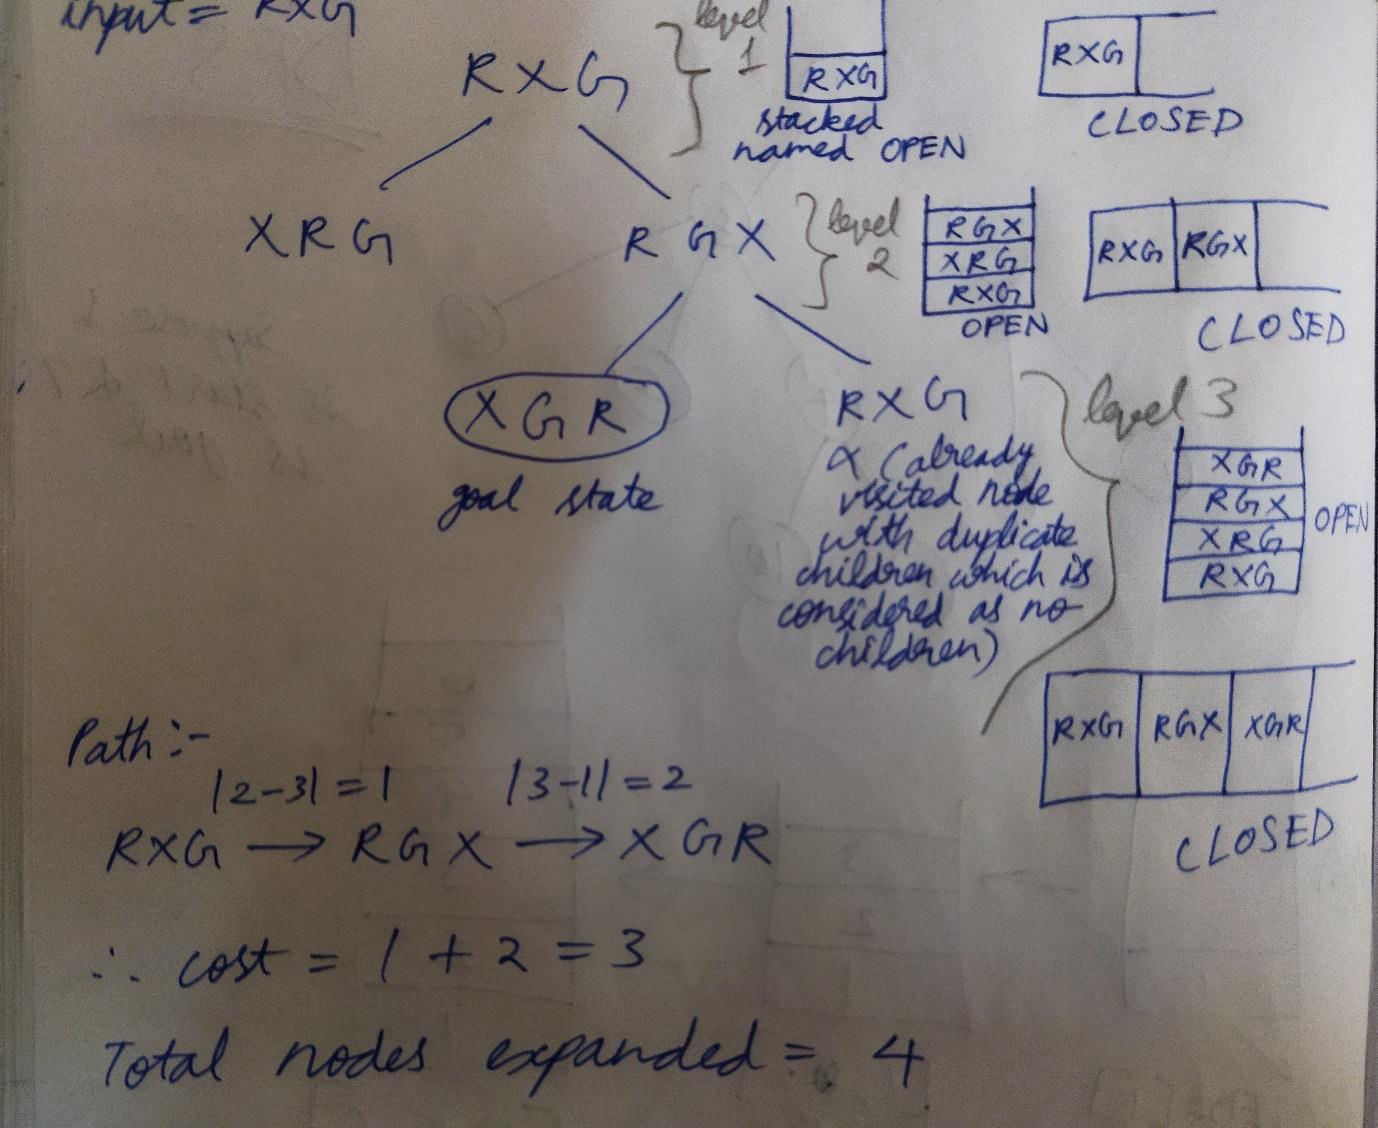 input = RXG
RXG
level
1
RXG
stacked
named OPEN
RXG
CLOSED
XRG
RGX
level
2
RGX
XRG
RXG
OPEN
RXG RGX
CLOSED
XGR
goal state
RXG
α (already
visited node
with duplicate
children which is
considered as no
children)
level 3
XGR
RGX
XRG
RXG
OPEN
RXG RGX XGR
CLOSED
Path :-
|2-3| = 1 |3-1| = 2
RXG → RGX → XGR
∴ cost = 1 + 2 = 3
Total nodes expanded = 4